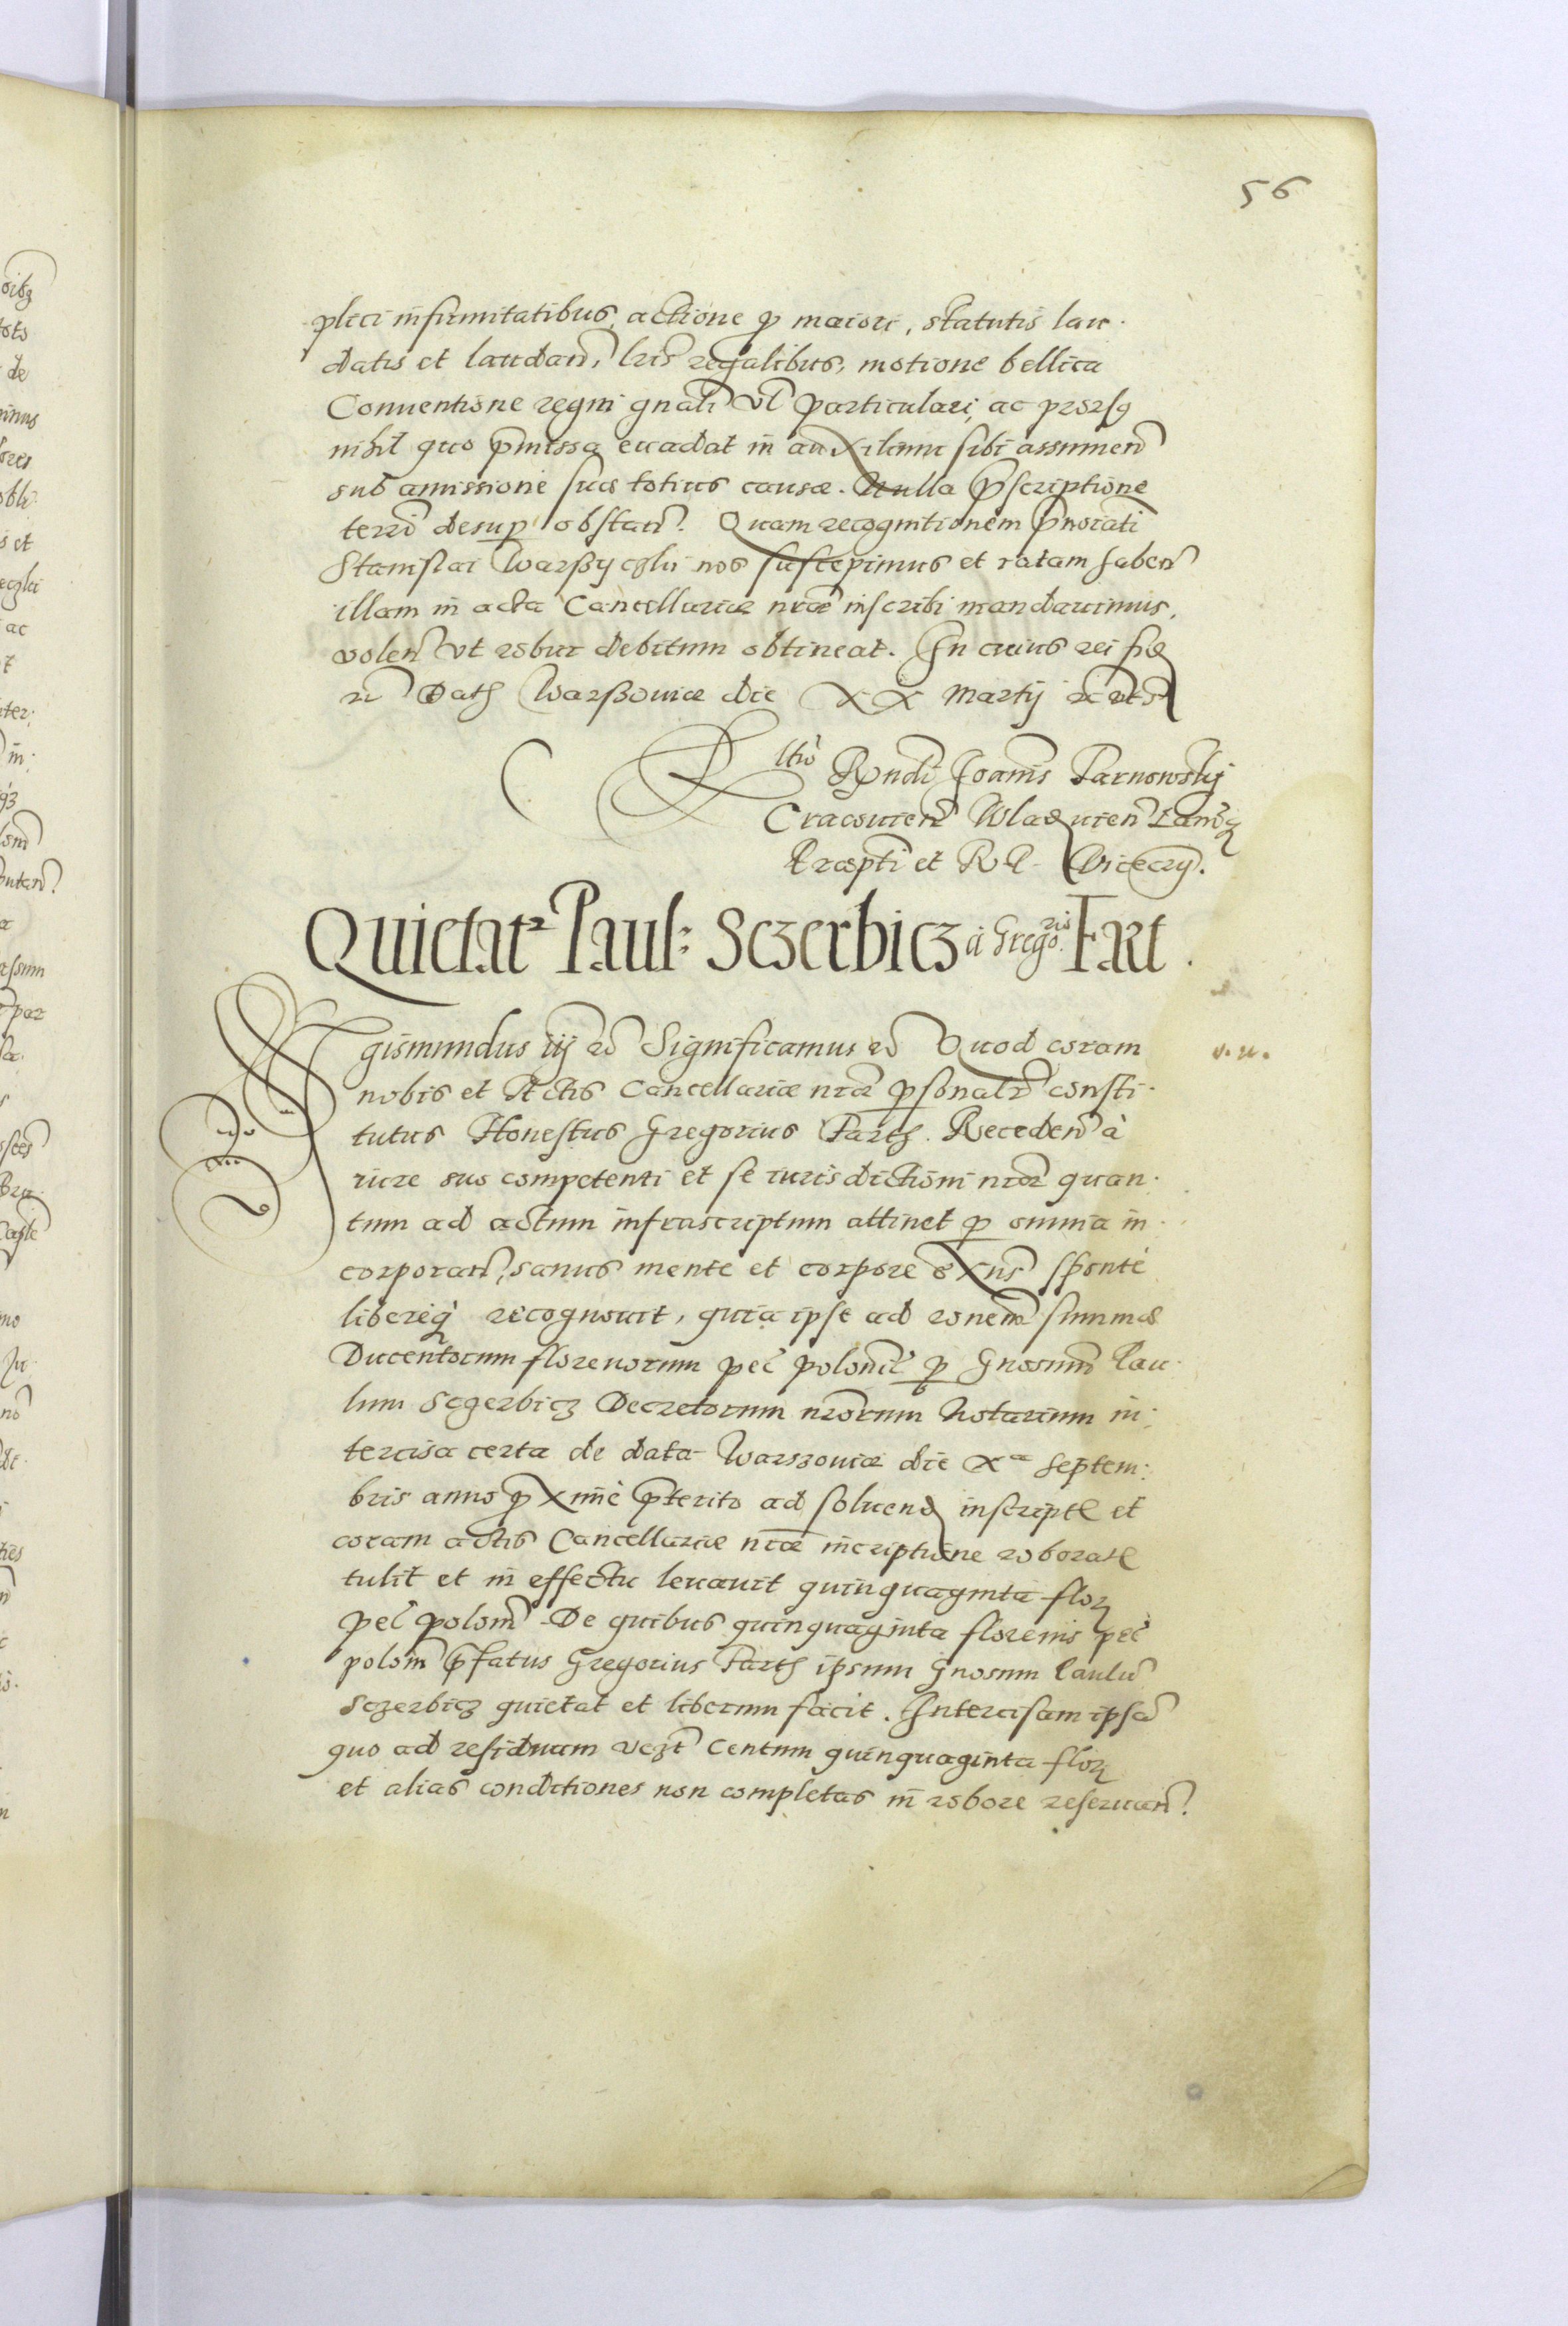 56
plici infirmitatibus, actione p maiori, statutis lau-
datis et laudan, lris regalibus, motione bellica
Conventione regni gnali vl particulari, ac prorsq
nihil quo pmissa evadat in auxilium sibi assumen
sub amissione suæ totius causæ. Nulla pscriptione
terri desup obstan. Quam recognitionem pnorati
Stanislai Warßyczky nos suscepimus et ratam haben
illam in acta Cancellariæ nræ inscribi mandavimus,
volen vt robur debitum obtineat. In cuius rei fid
rc Dath Warßoviæ die XX Martij
Rltio Rndi Joanis Tarnowsky
Cracovien Wladvien Landz
Præpti et R P. Vicecry.
Quietat Paul: Sczerbicz à Gregoris Fart.
Sigismundus iij rc Significamus rc Quod coram
nobis et Actis Cancellariæ nræ psonalr consti-
tutus Honestus Gregorius Farth. Receden à
iure suo competenti et se iurisdictioni nræ quan-
tum ad actum infrascriptum attinet p omnia in-
corporan, sanus mente et corpore exns sponte
libereq recognovit, quia ipse ad ronem summæ
Ducentorum florenorum pec polonic p Gnosum Pau-
lum Sczerbicz Decretorum nrorum Notarium in-
tercisa certa de data Warszoviæ die Xa Septem-
bris anno pxime pterito ad solvend inscript et
coram actis Cancellariæ nræ incriptione roborat
tulit et in effectu levavit quinquaginta flor
pec polon De quibus quinquaginta florenis pec
polon pfatus Gregorius Farth ipsum Gnosum Paulu
Sczerbicz quietat et liberum facit. Intercisam ipsa
quo ad residuam vezt Centum quinquaginta flor
et alias conditiones non completas in robore reservan.